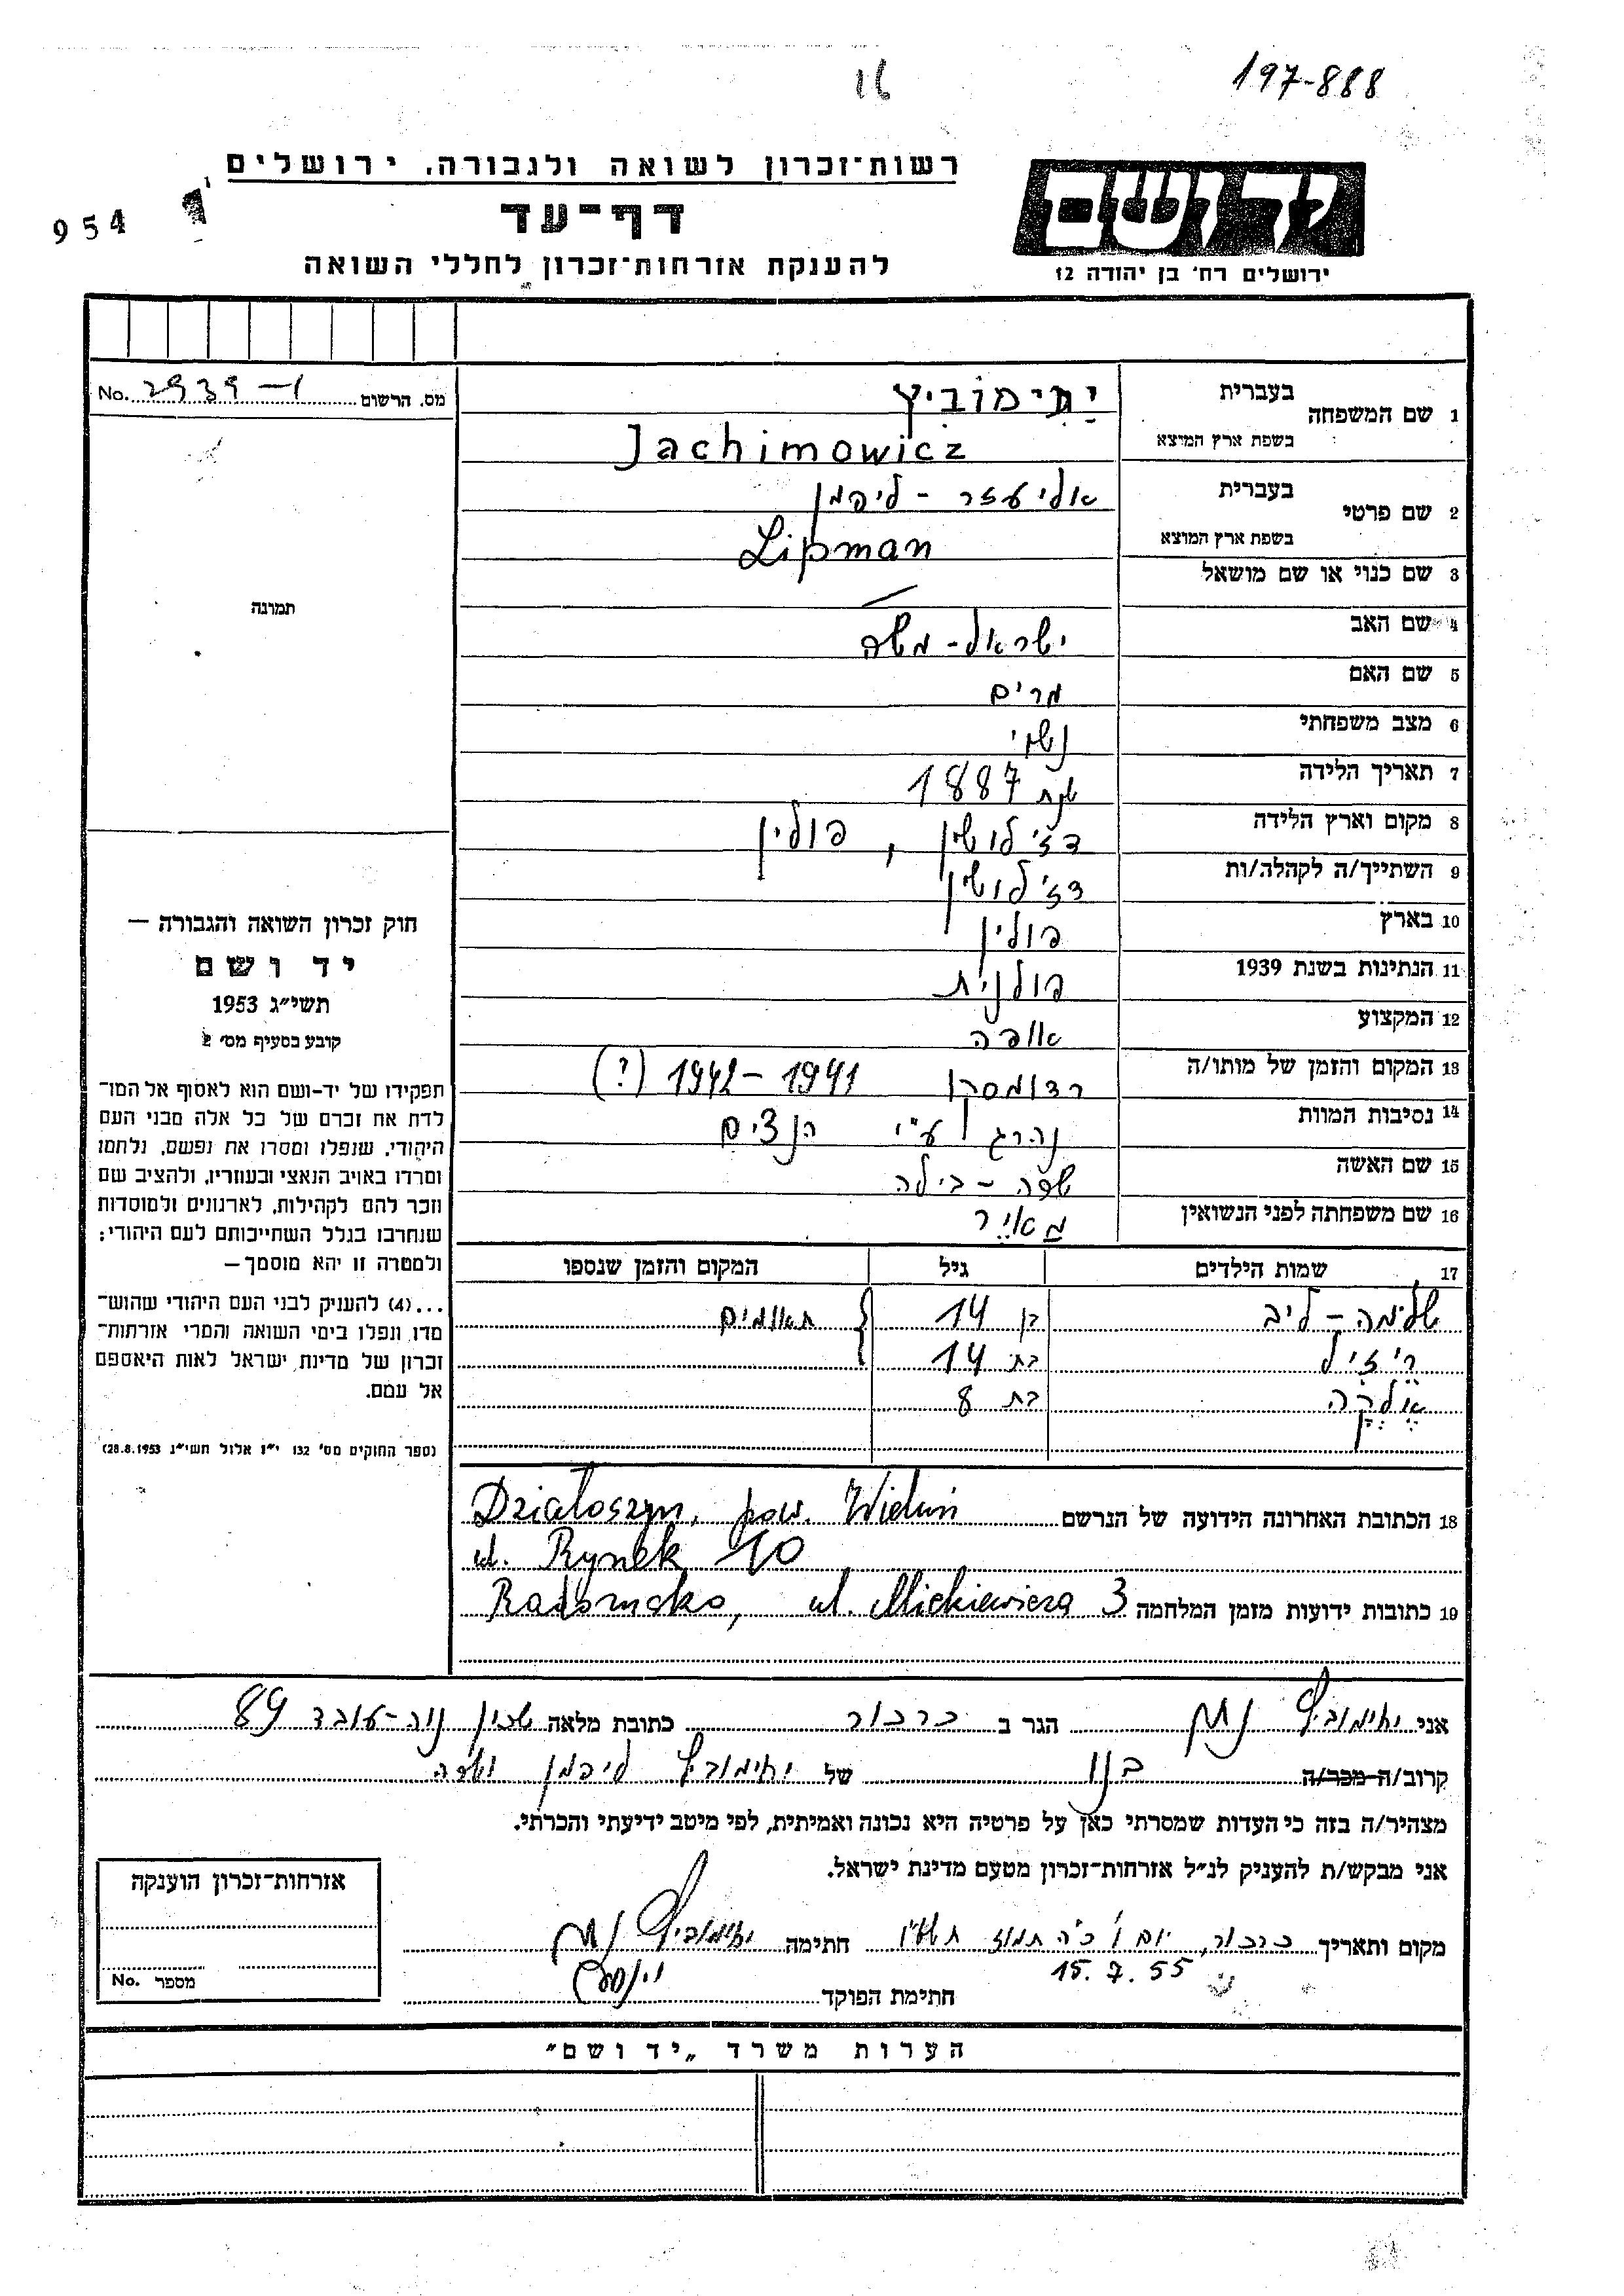 197-888
רשות־זכרון לשואה ולגבורה, ירושלים
954
דף־עד
להענקת אזרחות־זכרון לחללי השואה
יד ושם
ירושלים רח' בן יהודה 12
מס. הרשום 2939-1 No.
1 שם המשפחה
בעברית יַחִימוֹבִיץ
בשפת ארץ המוצא Jachimowicz
2 שם פרטי
בעברית אליעזר - ליפמן
בשפת ארץ המוצא Lipman
3 שם כנוי או שם מושאל —
4 שם האב ישראל-משה
5 שם האם מרים
6 מצב משפחתי נשוי
7 תאריך הלידה שנת 1887
8 מקום וארץ הלידה דז'לושין, פולין
9 השתייך/ה לקהלה/ות דז'לושין
10 בארץ פולין
11 הנתינות בשנת 1939 פולנית
12 המקצוע אופה
13 המקום והזמן של מותו/ה רדומסקו 1941-1942 (?)
14 נסיבות המוות נהרג ע"י הנצים
15 שם האשה שפה - בילה
16 שם משפחתה לפני הנשואין מאיר
17 שמות הילדים גיל המקום והזמן שנספו
שלימה - ליב בן 14 } תאומים
רייזיל בת 14
אֶלְקָה בת 8
תמונה
חוק זכרון השואה והגבורה —
יד ושם
תשי"ג 1953
קובע בסעיף מס' 2
תפקידו של יד-ושם הוא לאסוף אל המו־
לדת את זכרם של כל אלה מבני העם
היהודי, שנפלו ומסרו את נפשם, נלחמו
ומרדו באויב הנאצי ובעוזריו, ולהציב שם
וזכר להם לקהילות, לארגונים ולמוסדות
שנחרבו בגלל השתייכותם לעם היהודי;
ולמטרה זו יהא מוסמך —
...(4) להעניק לבני העם היהודי שהוש־
מדו ונפלו בימי השואה והמרי אזרחות־
זכרון של מדינת ישראל לאות היאספם
אל עמם.
(ספר החוקים מס' 132 י"ז אלול תשי"ג 28.8.1953)
18 הכתובת האחרונה הידועה של הנרשם Działoszyn, pow. Wieluń
ul. Rynek 10
19 כתובות ידועות מזמן המלחמה Radomsko, ul. Mickiewicza 3
אני יחימוביץ נתן הגר ב כרכור כתובת מלאה שכון נוה-עובד 89
קרוב/ה מכר/ה בנו של יחימוביץ ליפמן ושפה
מצהיר/ה בזה כי העדות שמסרתי כאן על פרטיה היא נכונה ואמיתית, לפי מיטב ידיעתי והכרתי.
אני מבקש/ת להעניק לנ"ל אזרחות־זכרון מטעם מדינת ישראל.
מקום ותאריך כרכור, יום ו' כ"ה תמוז תשט"ו חתימה יחימוביץ נתן
15.7.55
חתימת הפוקד
אזרחות־זכרון הוענקה
מספר No.
הערות משרד „יד ושם"